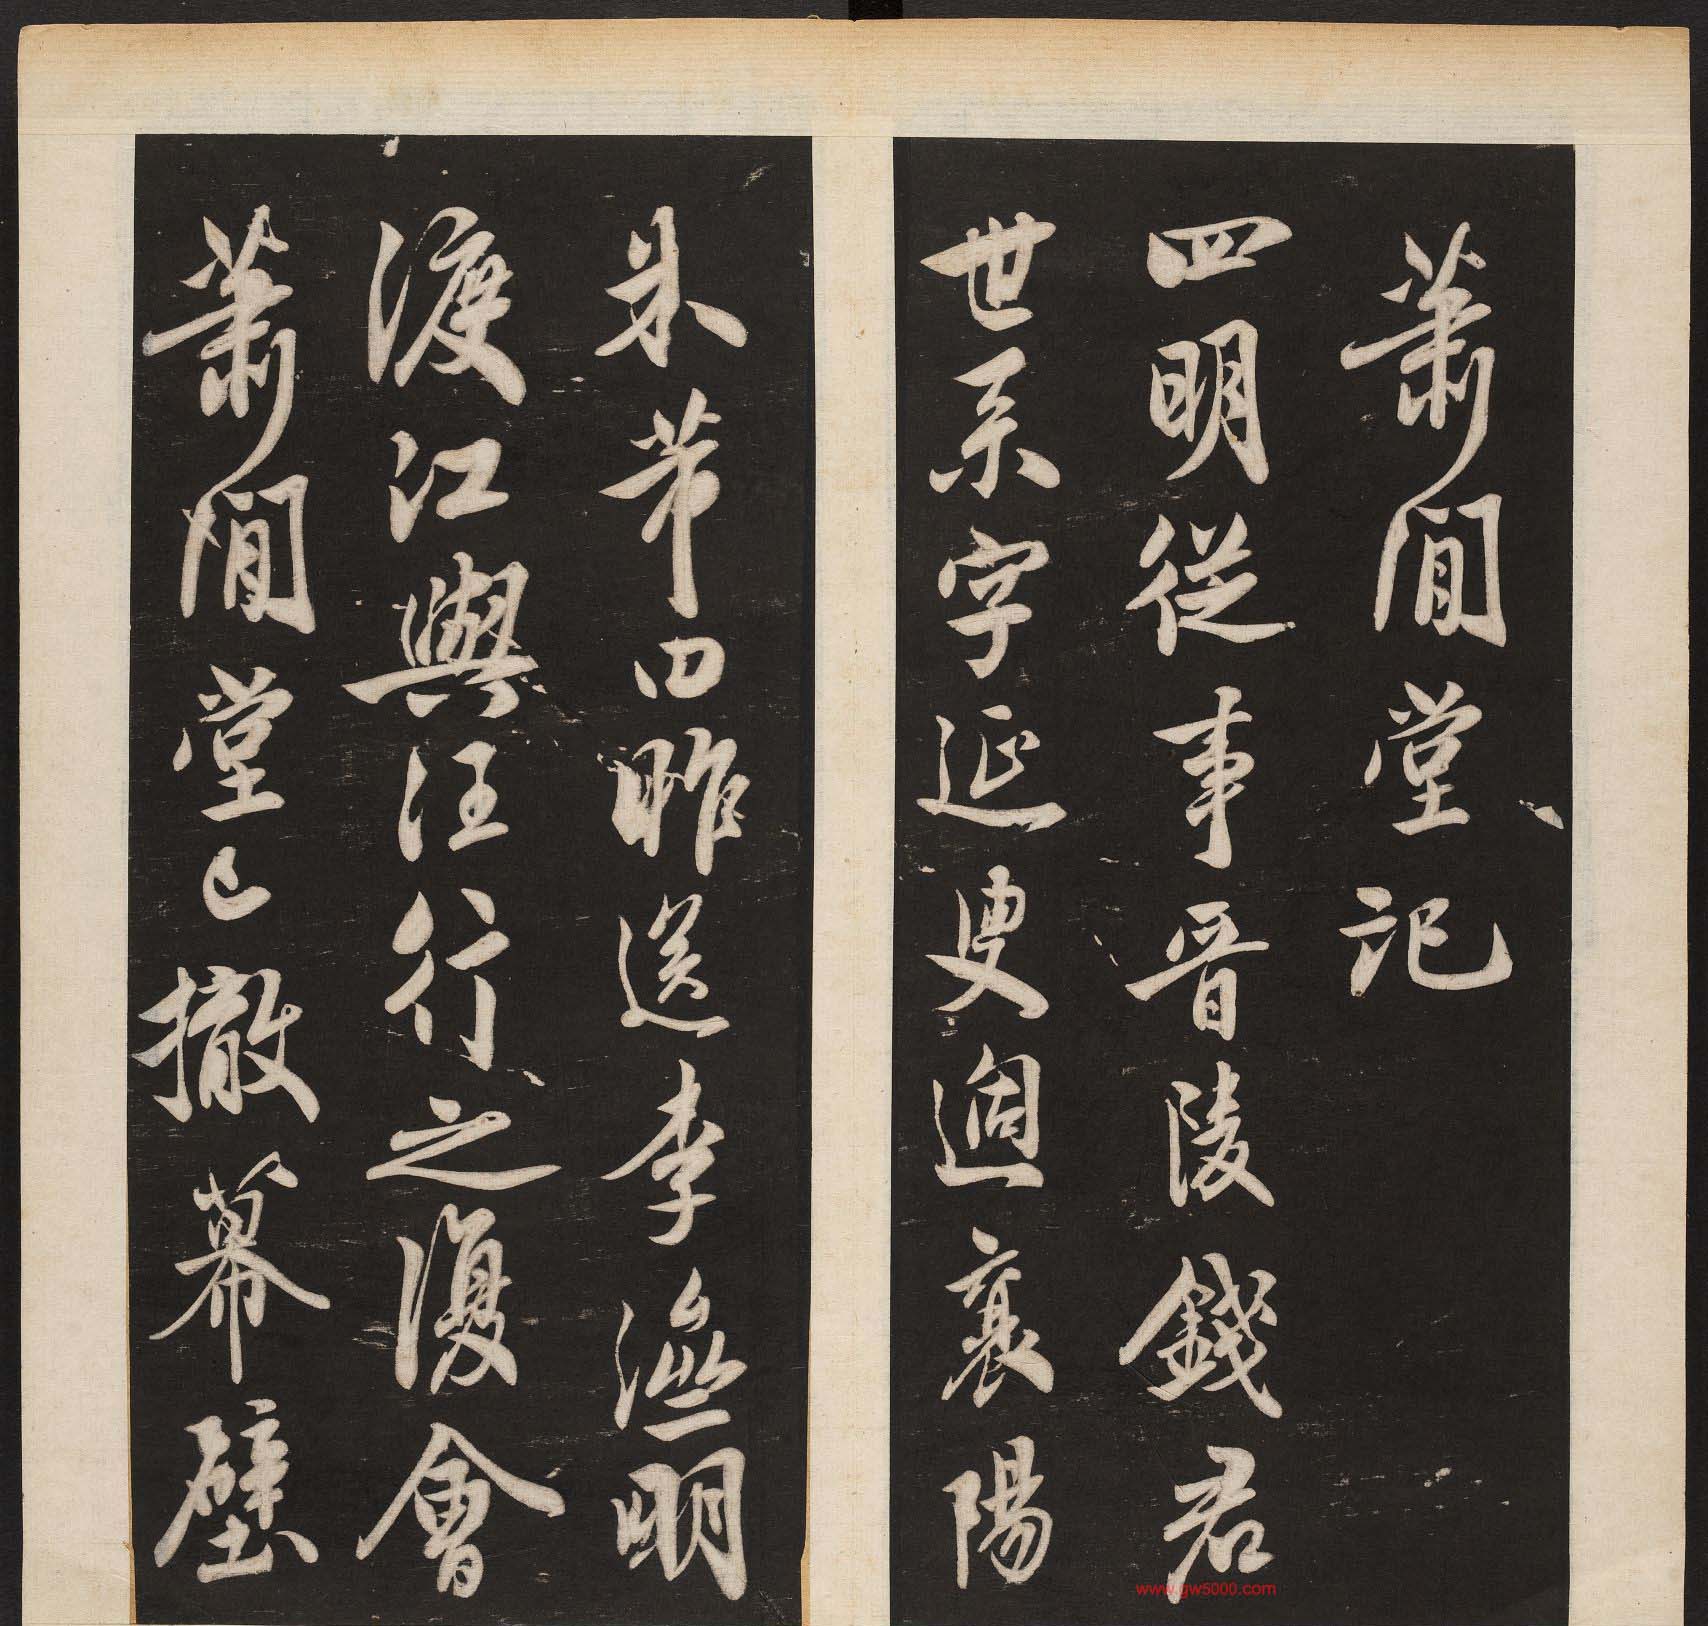 蕭閒堂記
四明從事晉陵錢君
世系字延叟適襄陽
米芾曰昨送李澁明
渡江與汪行之復會
蕭閒堂已撤幕壁
www.gw5000.com